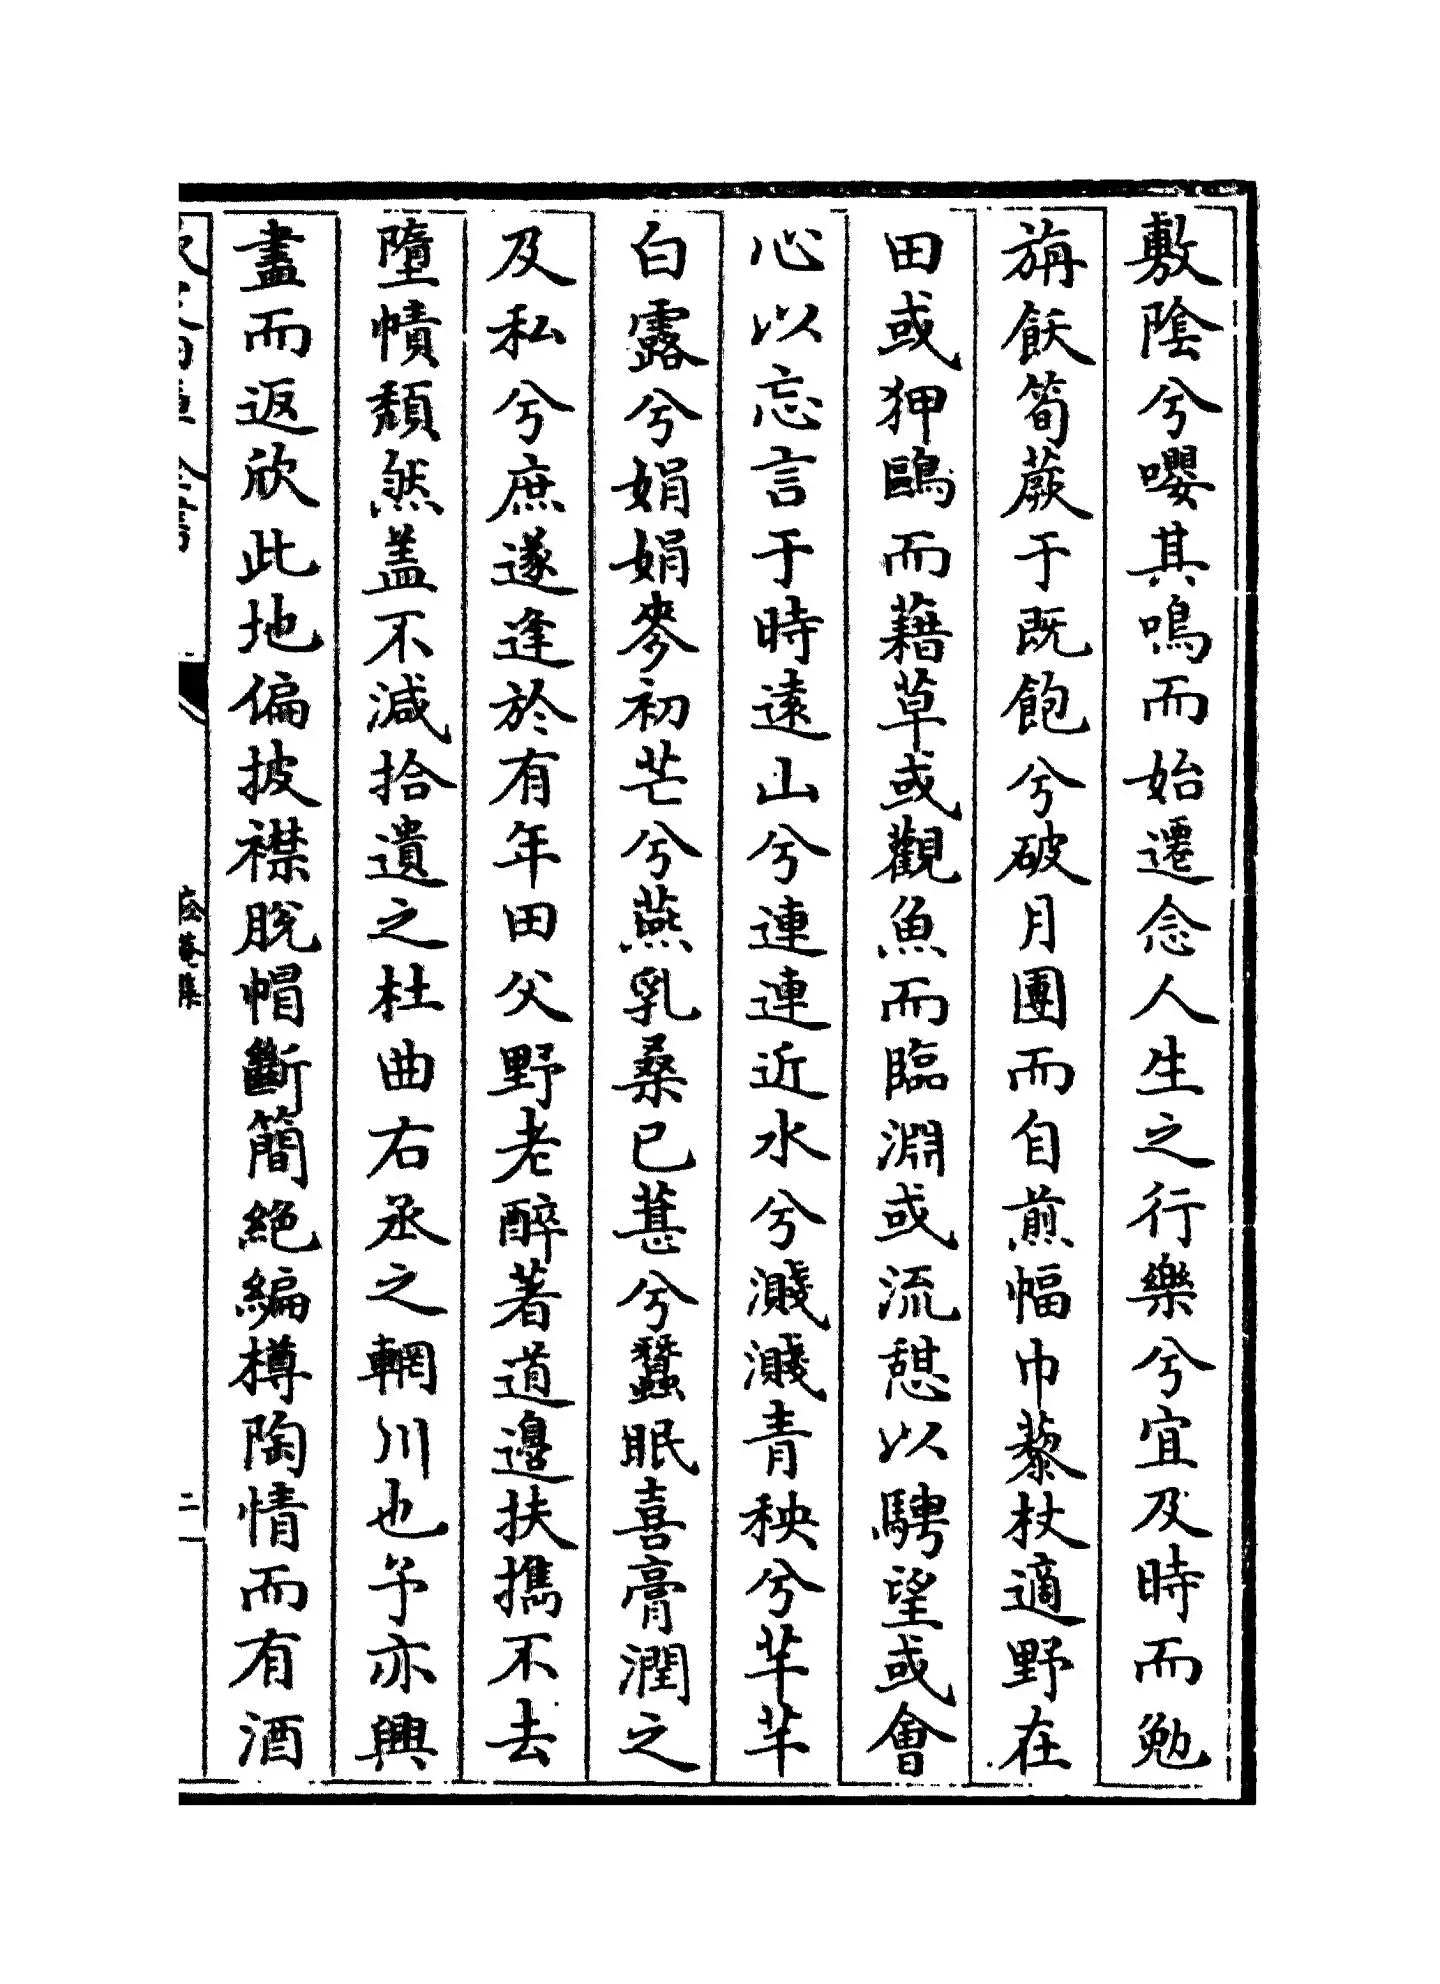 敷陰兮嚶其鳴而始遷念人生之行樂兮宜及時而勉
旃飫筍蕨于既飽兮破月團而自煎幅巾藜杖適野在
田或狎鷗而藉草或觀魚而臨淵或流憇以騁望或會
心以忘言于時遠山兮連連近水兮濺濺青秧兮芊芊
白露兮娟娟麥初芒兮燕乳桑已葚兮蠶眠喜膏潤之
及私兮庶遂逢於有年田父野老醉著道邊扶擕不去
墮幘頹然盖不減拾遺之杜曲右丞之輞川也予亦興
盡而返欣此地偏披襟脫帽斷簡絕編樽陶情而有酒